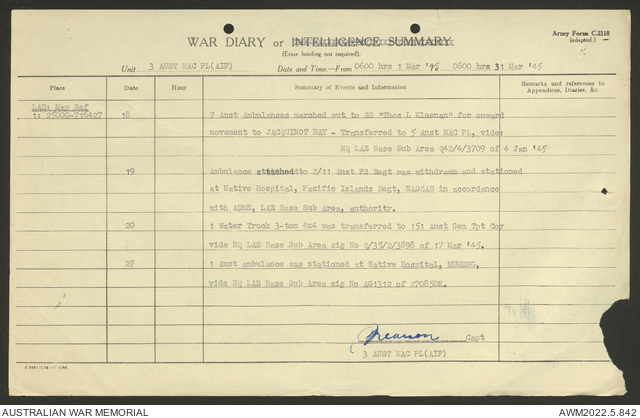 Army Form C.2118
(adapted.)
WAR DIARY or INTELLIGENCE SUMMARY
(Erase heading not required).
Unit 3 AUST MAC PL(AIF) Date and Time.—From 0600 hrs 1 Mar '45 0600 hrs 31 Mar '45
Place Date Hour Summary of Events and Information Remarks and references to Appendices, Diaries, &c.
LAE: Map Ref
1: 25000-716427 18 7 Aust Ambulances marched out to SS "Thos L Kleenan" for onward
movement to JACQUINOT BAY - Transferred to 5 Aust MAC PL, vide:
HQ LAE Base Sub Area Q42/4/3709 of 4 Jan '45
19 Ambulance attached to 2/11 Aust Fd Regt was withdrawn and stationed
at Native Hospital, Pacific Islands Regt, NADZAB in accordance
with ADMS, LAE Base Sub Area, authority.
20 1 Water Truck 3-ton 4x4 was transferred to 151 Aust Gen Tpt Coy
vide HQ LAE Base Sub Area sig No Q/35/2/3898 of 17 Mar '45.
27 1 Aust ambulance was stationed at Native Hospital,
vide HQ LAE Base Sub Area sig No AG1312 of 270850K.
Capt
3 AUST MAC PL(AIF)
AUSTRALIAN WAR MEMORIAL AWM2022.5.842